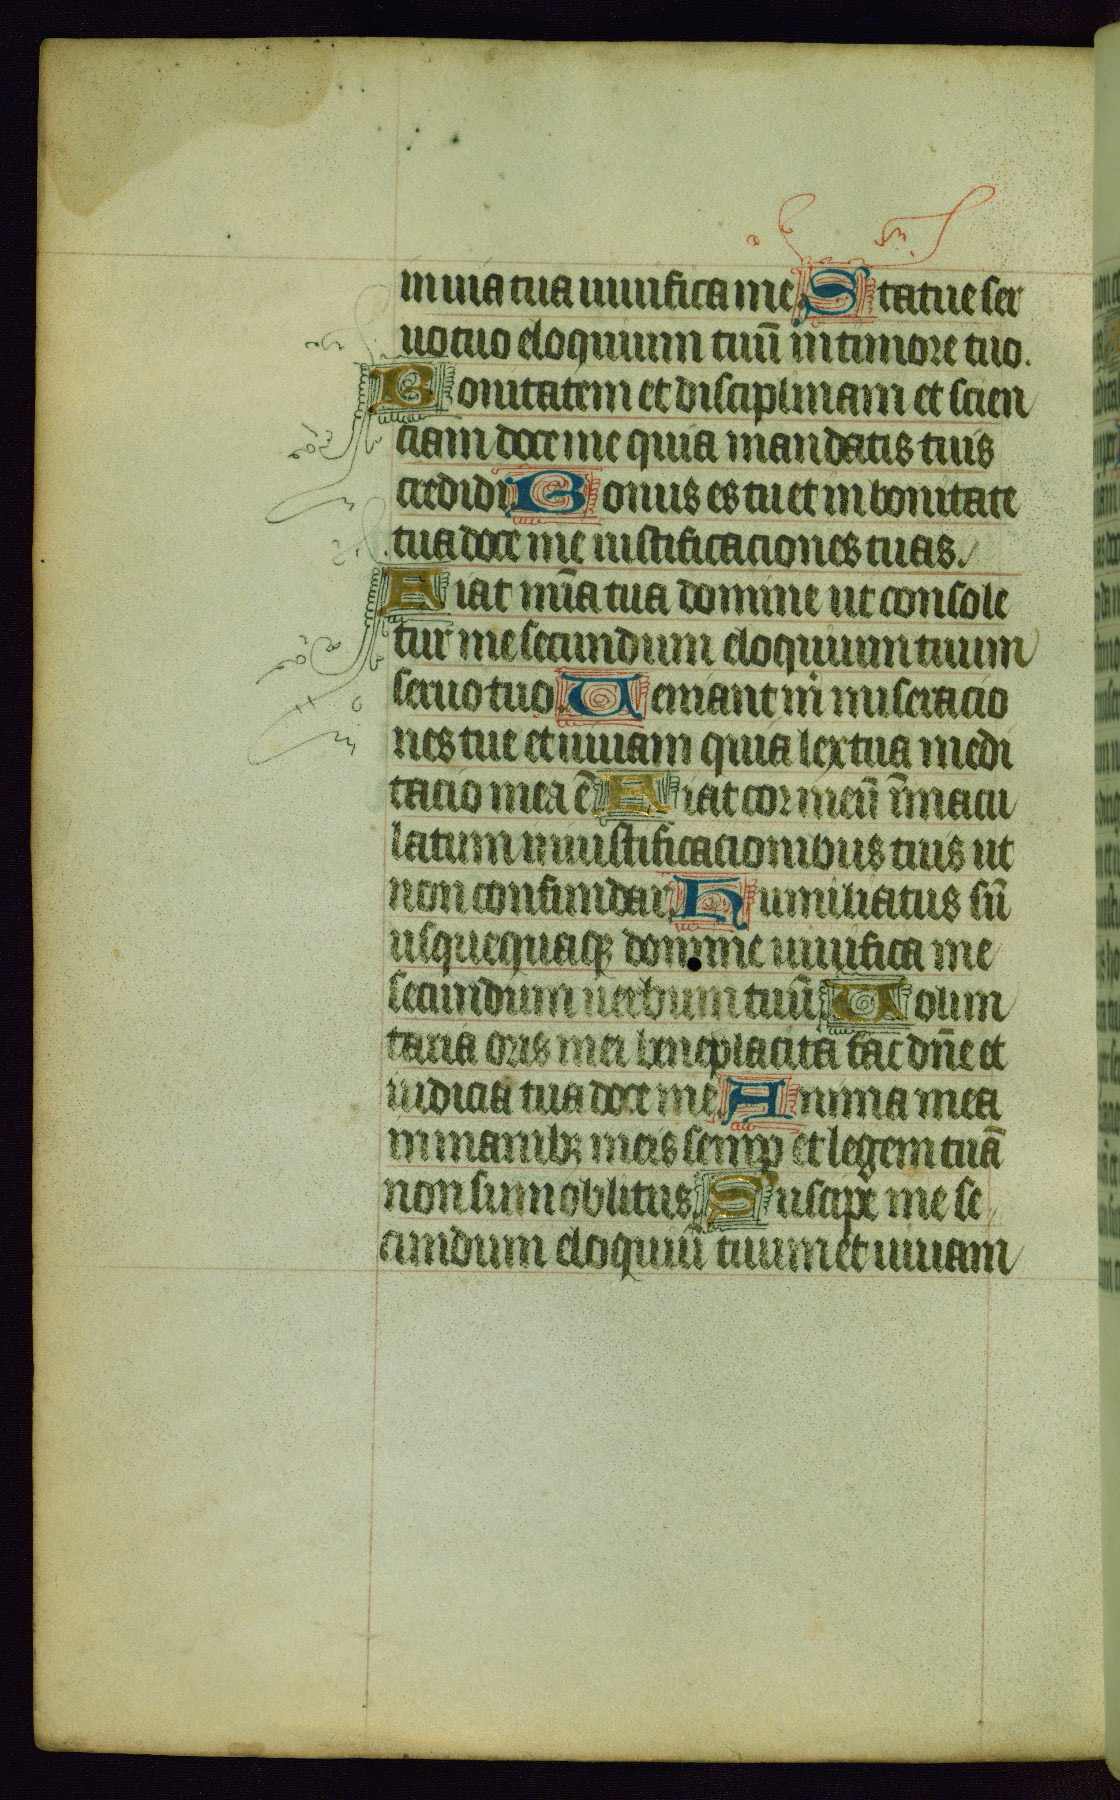 in uia tua uiuifica me. Statue ser
uo tuo eloquium tuū in timore tuo.
Bonitatem et disciplinam et scien
ciam doce me quia mandatis tuis
credidi. Bonus es tu et in bonitate
tua doce me iustificaciones tuas.
Fiat mīa tua domine ut console
tur me secundum eloquium tuum
seruo tuo. Ueniant m̄ miseracio
nes tue et uiuam quia lex tua medi
tacio mea ē. Fiat cor meū īmacu
latum in iustificacionibus tuis ut
non confundar. Humiliatus sū
usquequaq; domine uiuifica me
secundum uerbum tuū. Uolun
taria oris mei beneplacita fac dn̄e et
iudicia tua doce me. Anima mea
in manibꝫ meis semꝑ et legem tuā
non sum oblitus. Suscipe me se
cundum eloquiū tuum et uiuam